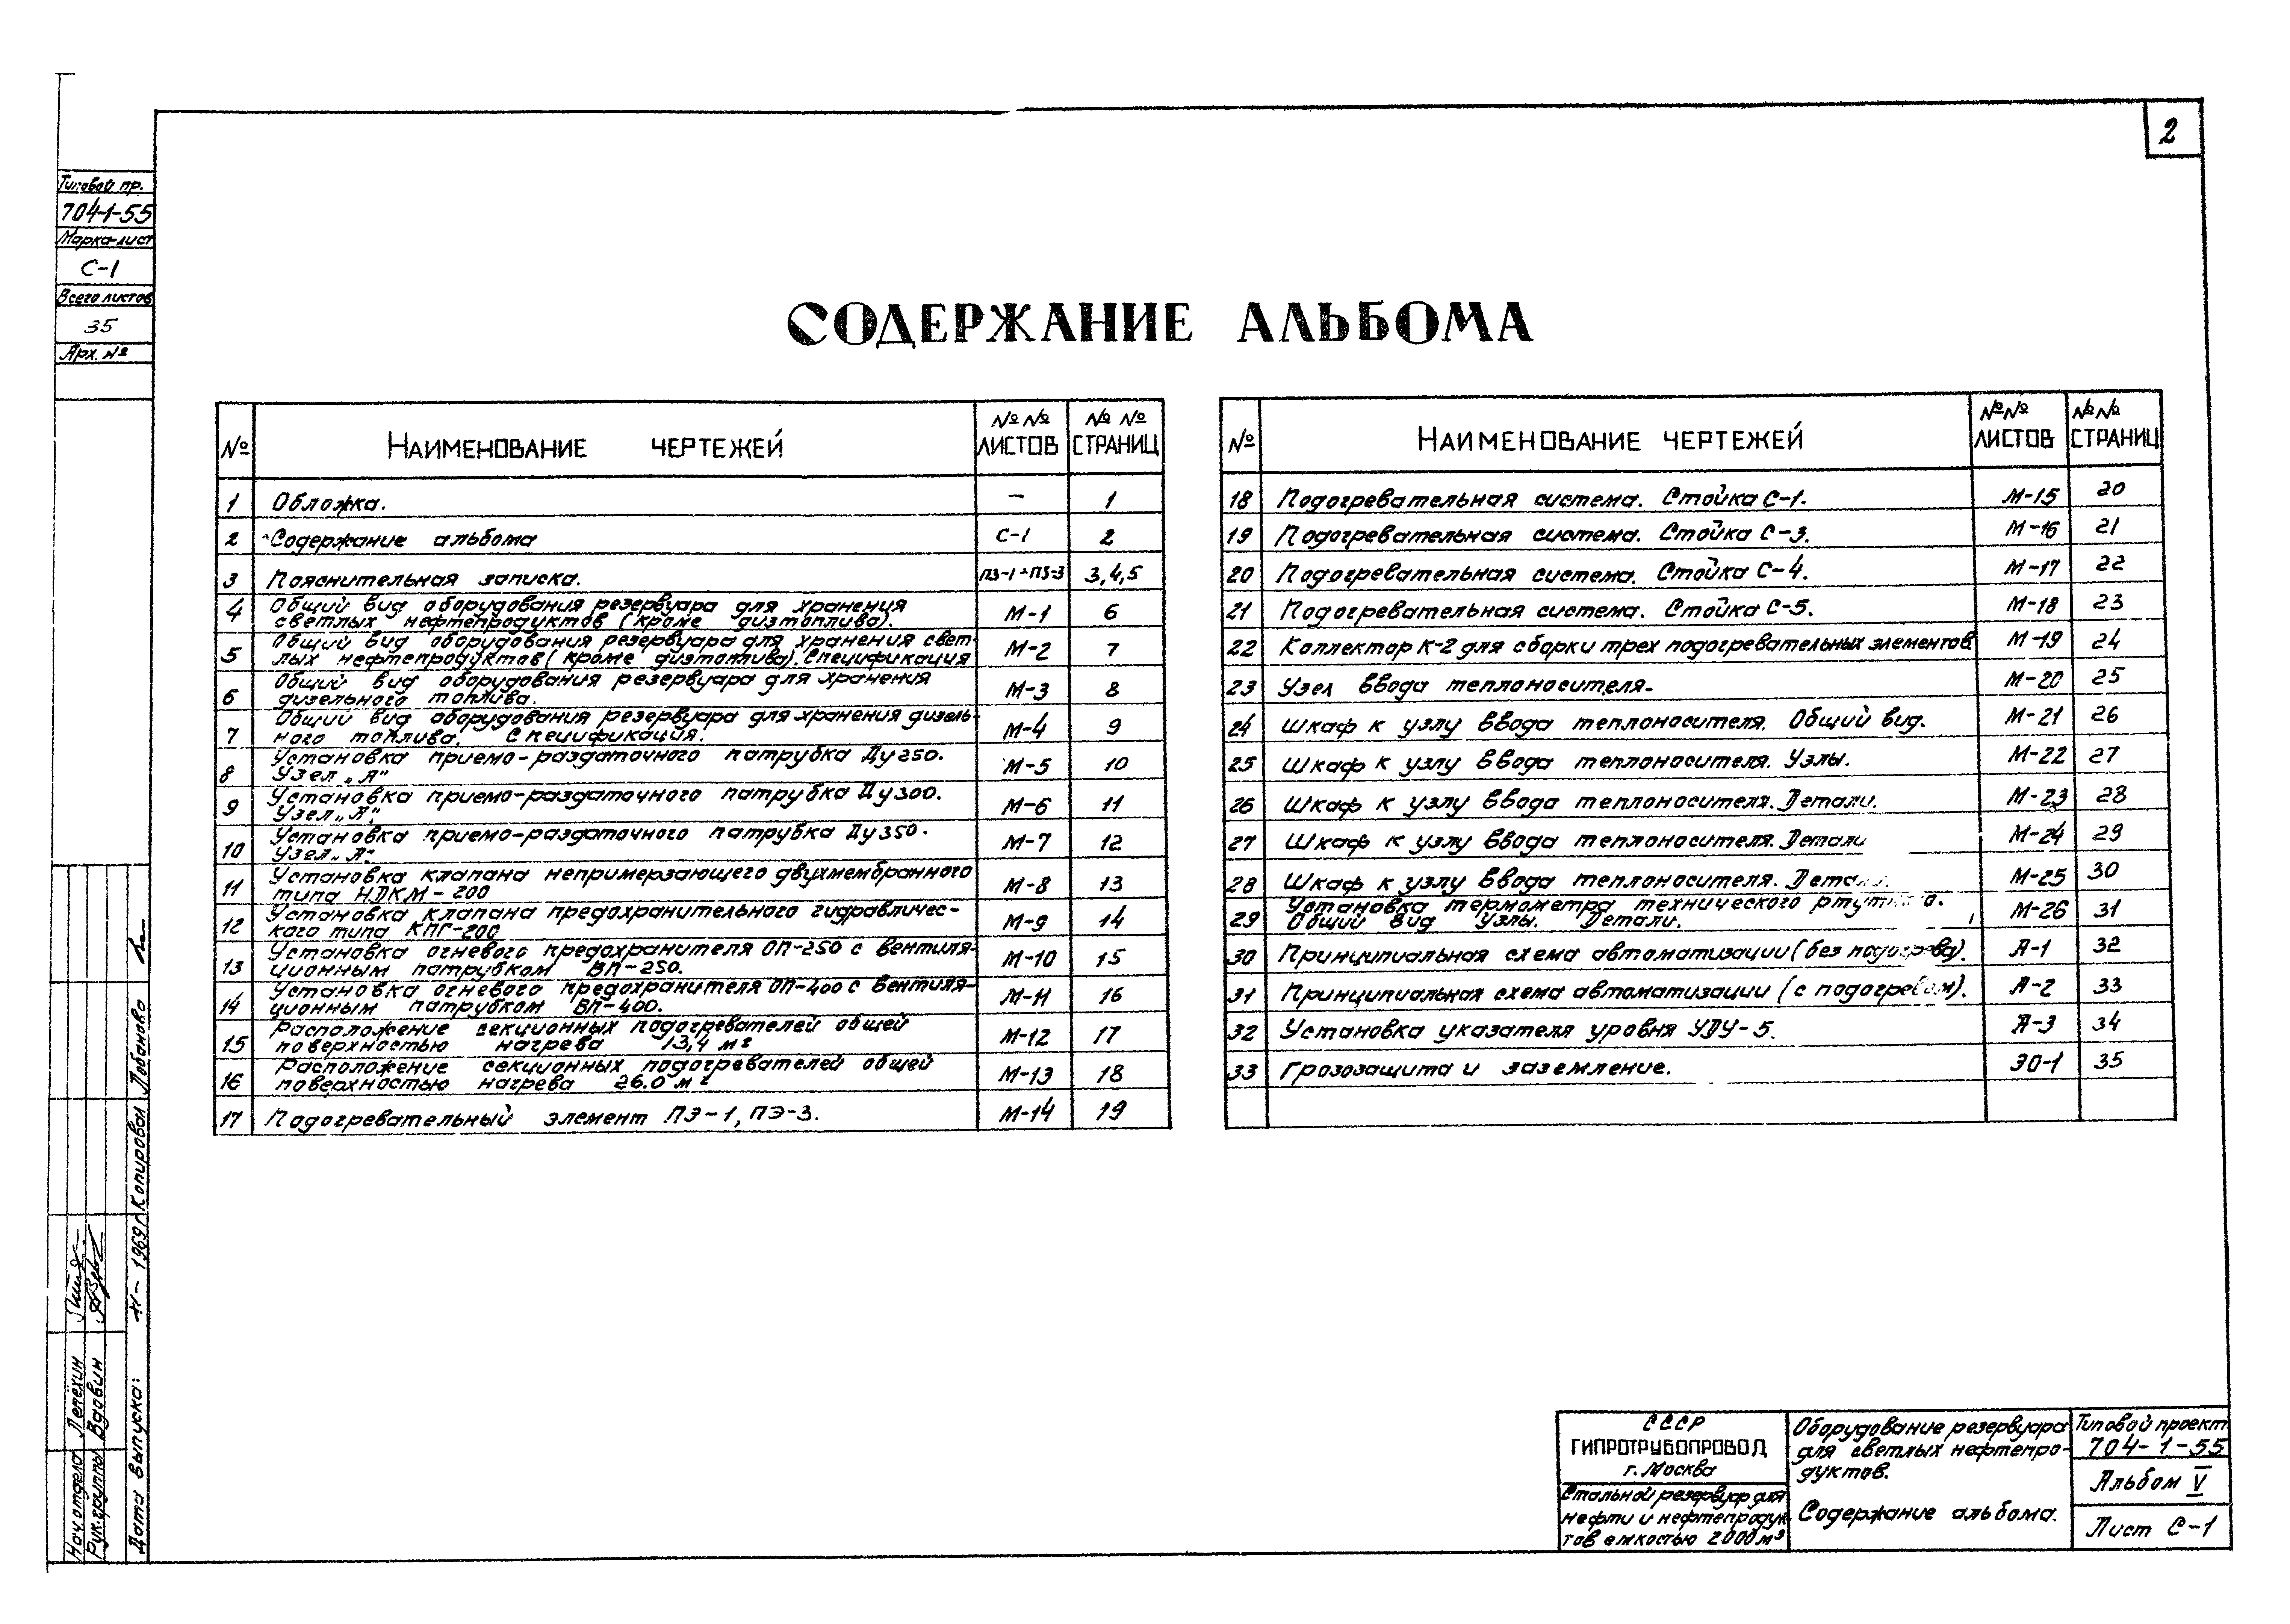 2
Типовой пр.
704-1-55
Марка-лист
С-1
Всего листов
35
Арх. №
СОДЕРЖАНИЕ АЛЬБОМА
№ НАИМЕНОВАНИЕ ЧЕРТЕЖЕЙ №№ ЛИСТОВ №№ СТРАНИЦ
1 Обложка. — 1
2 Содержание альбома С-1 2
3 Пояснительная записка. ПЗ-1÷ПЗ-3 3,4,5
4 Общий вид оборудования резервуара для хранения
светлых нефтепродуктов (кроме дизтоплива). М-1 6
5 Общий вид оборудования резервуара для хранения свет-
лых нефтепродуктов (кроме дизтоплива). Спецификация М-2 7
6 Общий вид оборудования резервуара для хранения
дизельного топлива. М-3 8
7 Общий вид оборудования резервуара для хранения дизель-
ного топлива. Спецификация. М-4 9
8 Установка приемо-раздаточного патрубка Ду250.
Узел „А" М-5 10
9 Установка приемо-раздаточного патрубка Ду300.
Узел „А". М-6 11
10 Установка приемо-раздаточного патрубка Ду350.
Узел „А". М-7 12
11 Установка клапана непримерзающего двухмембранного
типа НДКМ-200 М-8 13
12 Установка клапана предохранительного гидравличес-
кого типа КПГ-200 М-9 14
13 Установка огневого предохранителя ОП-250 с вентиля-
ционным патрубком ВП-250. М-10 15
14 Установка огневого предохранителя ОП-400 с вентиля-
ционным патрубком ВП-400. М-11 16
15 Расположение секционных подогревателей общей
поверхностью нагрева 13,4 м² М-12 17
16 Расположение секционных подогревателей общей
поверхностью нагрева 26.0 м² М-13 18
17 Подогревательный элемент ПЭ-1, ПЭ-3. М-14 19
№ НАИМЕНОВАНИЕ ЧЕРТЕЖЕЙ №№ ЛИСТОВ №№ СТРАНИЦ
18 Подогревательная система. Стойка С-1. М-15 20
19 Подогревательная система. Стойка С-3. М-16 21
20 Подогревательная система. Стойка С-4. М-17 22
21 Подогревательная система. Стойка С-5. М-18 23
22 Коллектор К-2 для сборки трех подогревательных элементов М-19 24
23 Узел ввода теплоносителя. М-20 25
24 Шкаф к узлу ввода теплоносителя. Общий вид. М-21 26
25 Шкаф к узлу ввода теплоносителя. Узлы. М-22 27
26 Шкаф к узлу ввода теплоносителя. Детали. М-23 28
27 Шкаф к узлу ввода теплоносителя. Детали М-24 29
28 Шкаф к узлу ввода теплоносителя. Детали. М-25 30
29 Установка термометра технического ртутного.
Общий вид Узлы. Детали. М-26 31
30 Принципиальная схема автоматизации (без подогрева). А-1 32
31 Принципиальная схема автоматизации (с подогревом). А-2 33
32 Установка указателя уровня УДУ-5. А-3 34
33 Грозозащита и заземление. ЭО-1 35
Нач. отдела Лепёхин
Рук. группы Вдовин
Дата выпуска: 1969г. Копировал Лобанова
СССР
ГИПРОТРУБОПРОВОД
г. Москва
Стальной резервуар для
нефти и нефтепродук-
тов емкостью 2000 м³
Оборудование резервуара
для светлых нефтепро-
дуктов.
Содержание альбома.
Типовой проект
704-1-55
Альбом V
Лист С-1